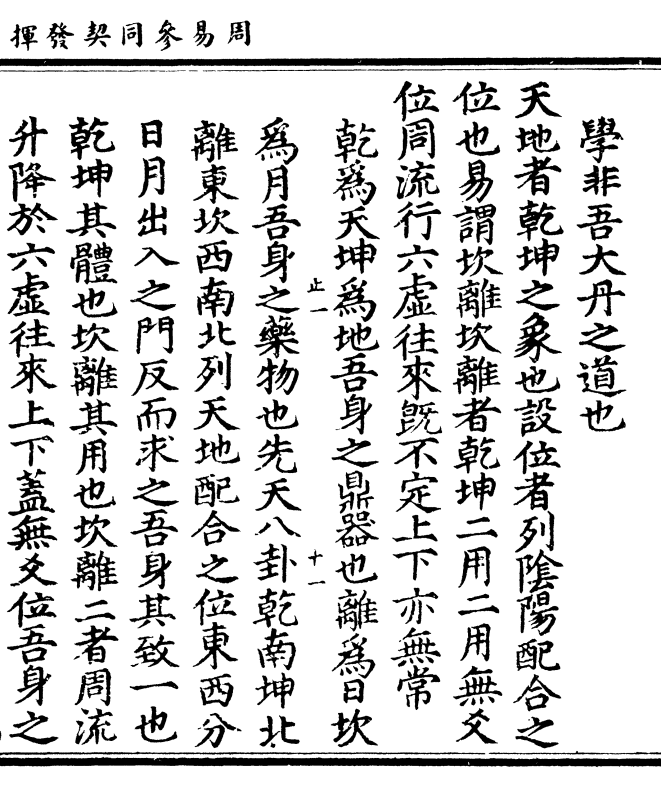 周易參同契發揮
學非吾大丹之道也
天地者乾坤之象也設位者列陰陽配合之
位也易謂坎離坎離者乾坤二用二用無爻
位周流行六虛往來旣不定上下亦無常
乾爲天坤爲地吾身之鼎器也離爲日坎
止一
十一
爲月吾身之藥物也先天八卦乾南坤北
離東坎西南北列天地配合之位東西分
日月出入之門反而求之吾身其致一也
乾坤其體也坎離其用也坎離二者周流
升降於六虛往來上下蓋無爻位吾身之